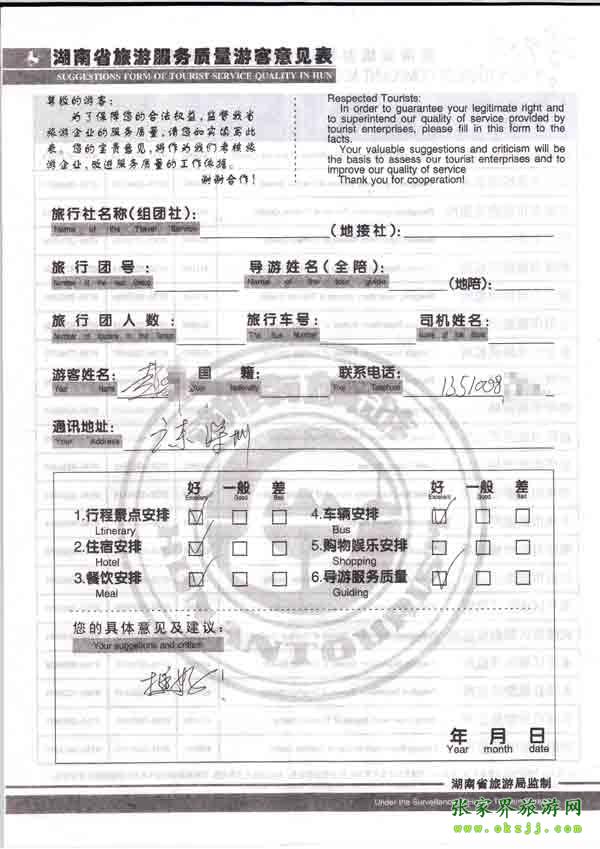 湖南省旅游服务质量游客意见表
SUGGESTIONS FORM OF TOURIST SERVICE QUALITY IN HUN
尊敬的游客:
为了保障您的合法权益,监督我省
旅游企业的服务质量,请您如实填写此
表。您的宝贵意见,将作为我们考核旅
游企业、改进服务质量的工作依据。
谢谢合作!
Respected Tourists:
In order to guarantee your legitimate right and
to superintend our quality of service provided by
tourist enterprises, please fill in this form to the
facts.
Your valuable suggestions and criticism will be
the basis to assess our tourist enterprises and to
improve our quality of service
Thank you for cooperation!
旅行社名称(组团社): (地接社):
Name of the Travel Service
旅行团号: 导游姓名(全陪): (地陪):
Name of the tour guide
旅行团人数: 旅行车号: 司机姓名:
The Bus Number
游客姓名: 国籍: 联系电话: 1351008
Your Name Your Nationality Your Telephone
通讯地址: 广东深圳
Your Address
好 一般 差 好 一般 差
Excellent Good Bad Excellent Good Bad
1.行程景点安排 4.车辆安排
Ltinerary Bus
2.住宿安排 5.购物娱乐安排
Hotel Shopping
3.餐饮安排 6.导游服务质量
Meal Guiding
您的具体意见及建议:
Your suggetions and critism
挺好!
年 月 日
Year month date
湖南省旅游局监制
Under the Surveillance of
张家界旅游网
www.okzjj.com